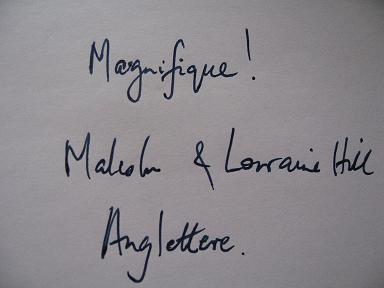 Magnifique!
Malcolm & Lorraine Hill
Anglettere.